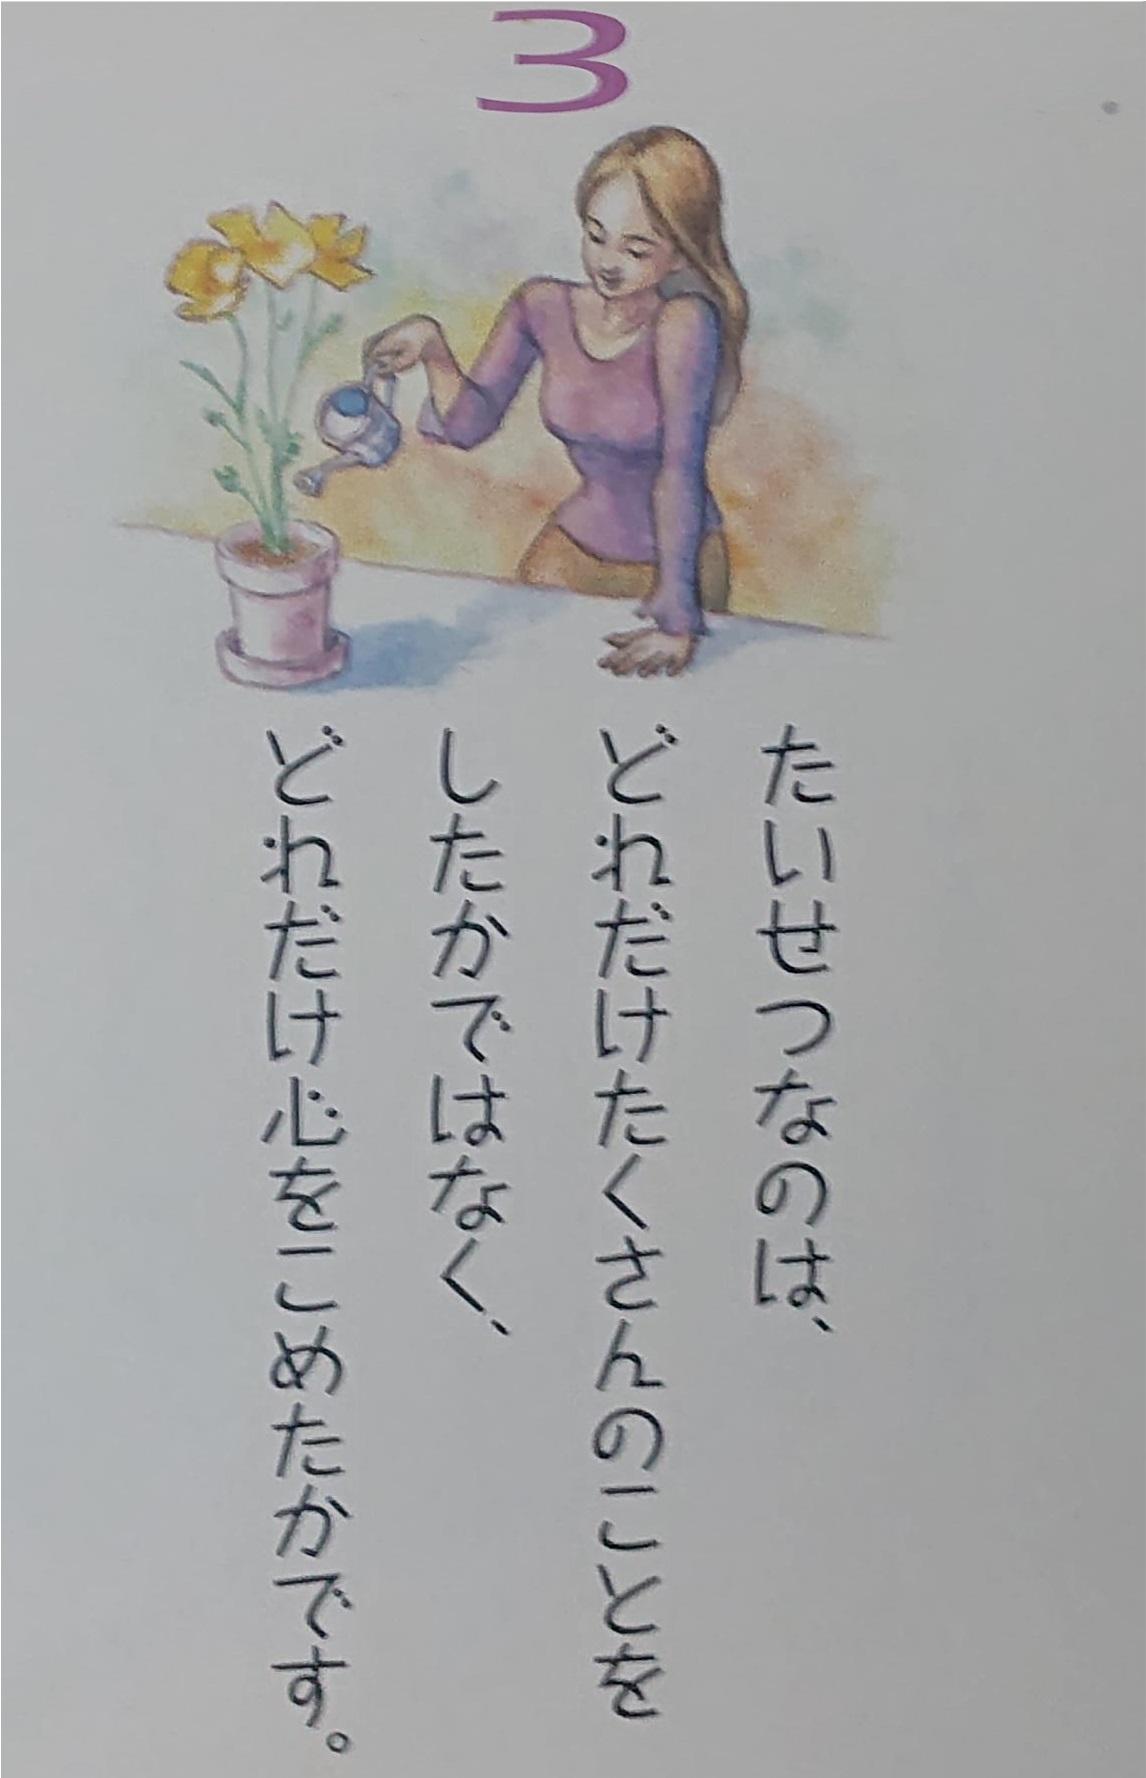 3
たいせつなのは、
どれだけたくさんのことを
したかではなく、
どれだけ心をこめたかです。